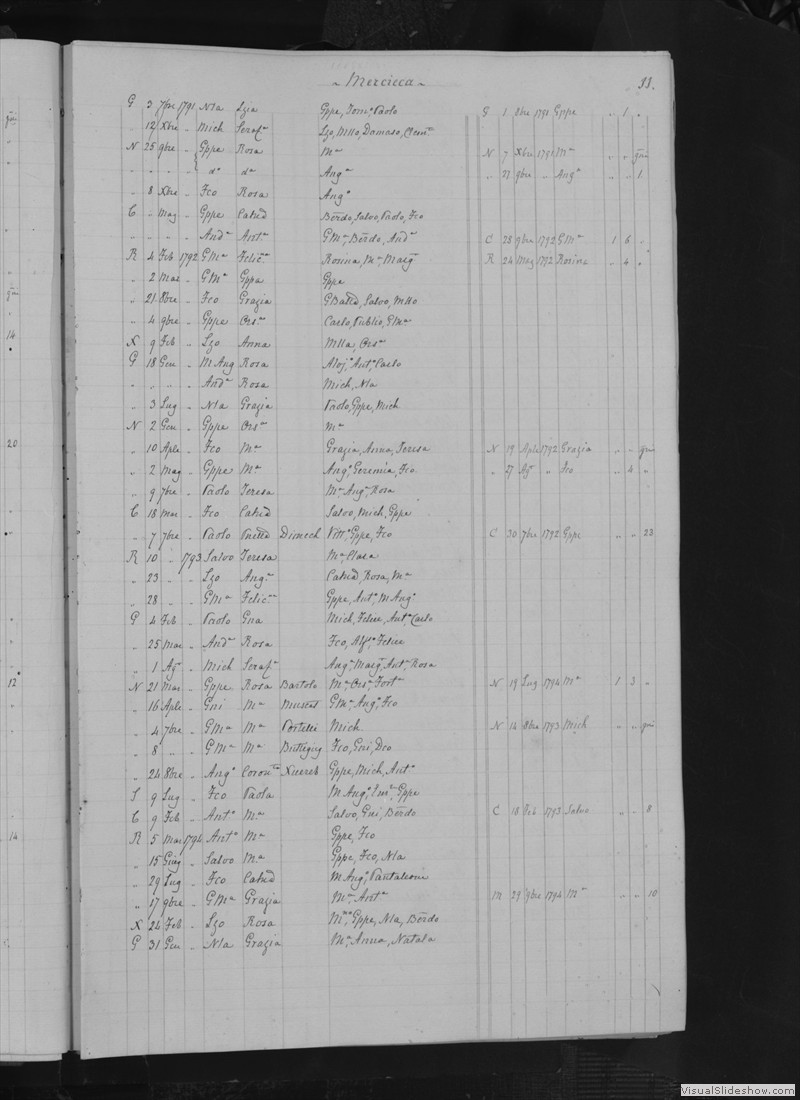 ~ Mercieca ~ 33.
G 3 7bre 1791 Nla Lza Gppe, Dom.º Paolo G 1 8bre 1791 Gppe " 1 "
" 12 Xbre - Mich Seraf.ª Lzo, Mllo, Damaso, Clem.te
N 25 9bre - Gppe Rosa M.ª N 7 Xbre 1791 M.ª " "
" " " - d.º d.ª Ang.ª " 27 9bre " Ang.ª " " 1
" 8 Xbre - Fco Rosa Ang.º
C - Mag - Gppe Cated Bērdo, Salvo, Paolo, Fco
" " " - And.ª Ant.ª GM.ª, Bērdo, And.ª C 28 9bre 1792 GM.ª 1 6 "
R 4 Feb 1792 GM.ª Felic.ª Rosina, M.ª, Marg.ª R 24 Mag 1792 Rosina " 4 "
" 2 Mar - GM.ª Gppa Gppe
" 21 8bre - Fco Grazia GBatta, Salvo, Mllo
" 4 9bre - Gppe Ors.ª Carlo, Publio, GM.ª
X 9 Feb - Lzo Anna Mlla, Ors.ª
G 18 Gen - M Ang Rosa Aloj.º Ant.º Carlo
" " " - And.ª Rosa Mich, Nla
" 3 Lug - Nla Grazia Paolo, Gppe, Mich
N 2 Gen - Gppe Ors.ª M.ª
" 10 Aple - Fco M.ª Grazia, Anna, Teresa N 19 Aple 1792 Grazia " -
" 2 Mag - Gppe M.ª Ang.º Geremia, Fco " 27 Ag.º " Fco " 4 "
" 9 7bre - Paolo Teresa M.ª Ang.ª Rosa
C 18 Mar - Fco Cated Salvo, Mich, Gppe
" 7 7bre - Paolo Dimech Vitt.ª Gppe, Fco C 30 7bre 1792 Gppe " " 23
R 10 " 1793 Salvo Teresa M.ª Clara
" 23 " - Lzo Ang.ª Cated, Rosa, M.ª
" 28 " - GM.ª Felic.ª Gppe, Ant.º, M Ang.º
G 4 Feb - Paolo Gna Mich, Felice, Ant.º Carlo
" 25 Mar - And.ª Rosa Fco, Alf.so, Felice
" 1 Ag.º - Mich Seraf.ª Ang.ª Marg.ª Ant.ª Rosa
N 21 Mar - Gppe Rosa Bartolo M.ª Ors.ª Fort.ª N 19 Lug 1794 M.ª 1 3 "
" 16 Aple - Gni M.ª Muscat GM.ª Ang.º Fco
" 4 7bre - GM.ª M.ª Portelli Mich N 14 8bre 1793 Mich " "
" 8 " - GM.ª M.ª Buttigieg Fco, Gni, Dco
" 24 8bre - Ang.º Coron.ta Xuereb Gppe, Mich, Ant.º
S 9 Lug - Fco Paola M Ang.º Em.l, Gppe
C 9 Feb - Ant.º M.ª Salvo, Gni, Bērdo C 18 Feb 1793 Salvo " - 8
R 5 Mar 1794 Ant.º M.ª Gppe, Fco
" 15 Giug - Salvo M.ª Gppe, Fco, Nla
" 29 Lug - Fco Cated M Ang.º, Pantaleone
" 17 9bre - GM.ª Grazia M.ª Ant.ª M 29 9bre 1794 M.ª " " 10
X 24 Feb - Lzo Rosa Gppe, Nla, Bērdo
G 31 Gen - Nla Grazia M.ª, Anna, Natala
14
20
12
14
VisualSlideshow.com